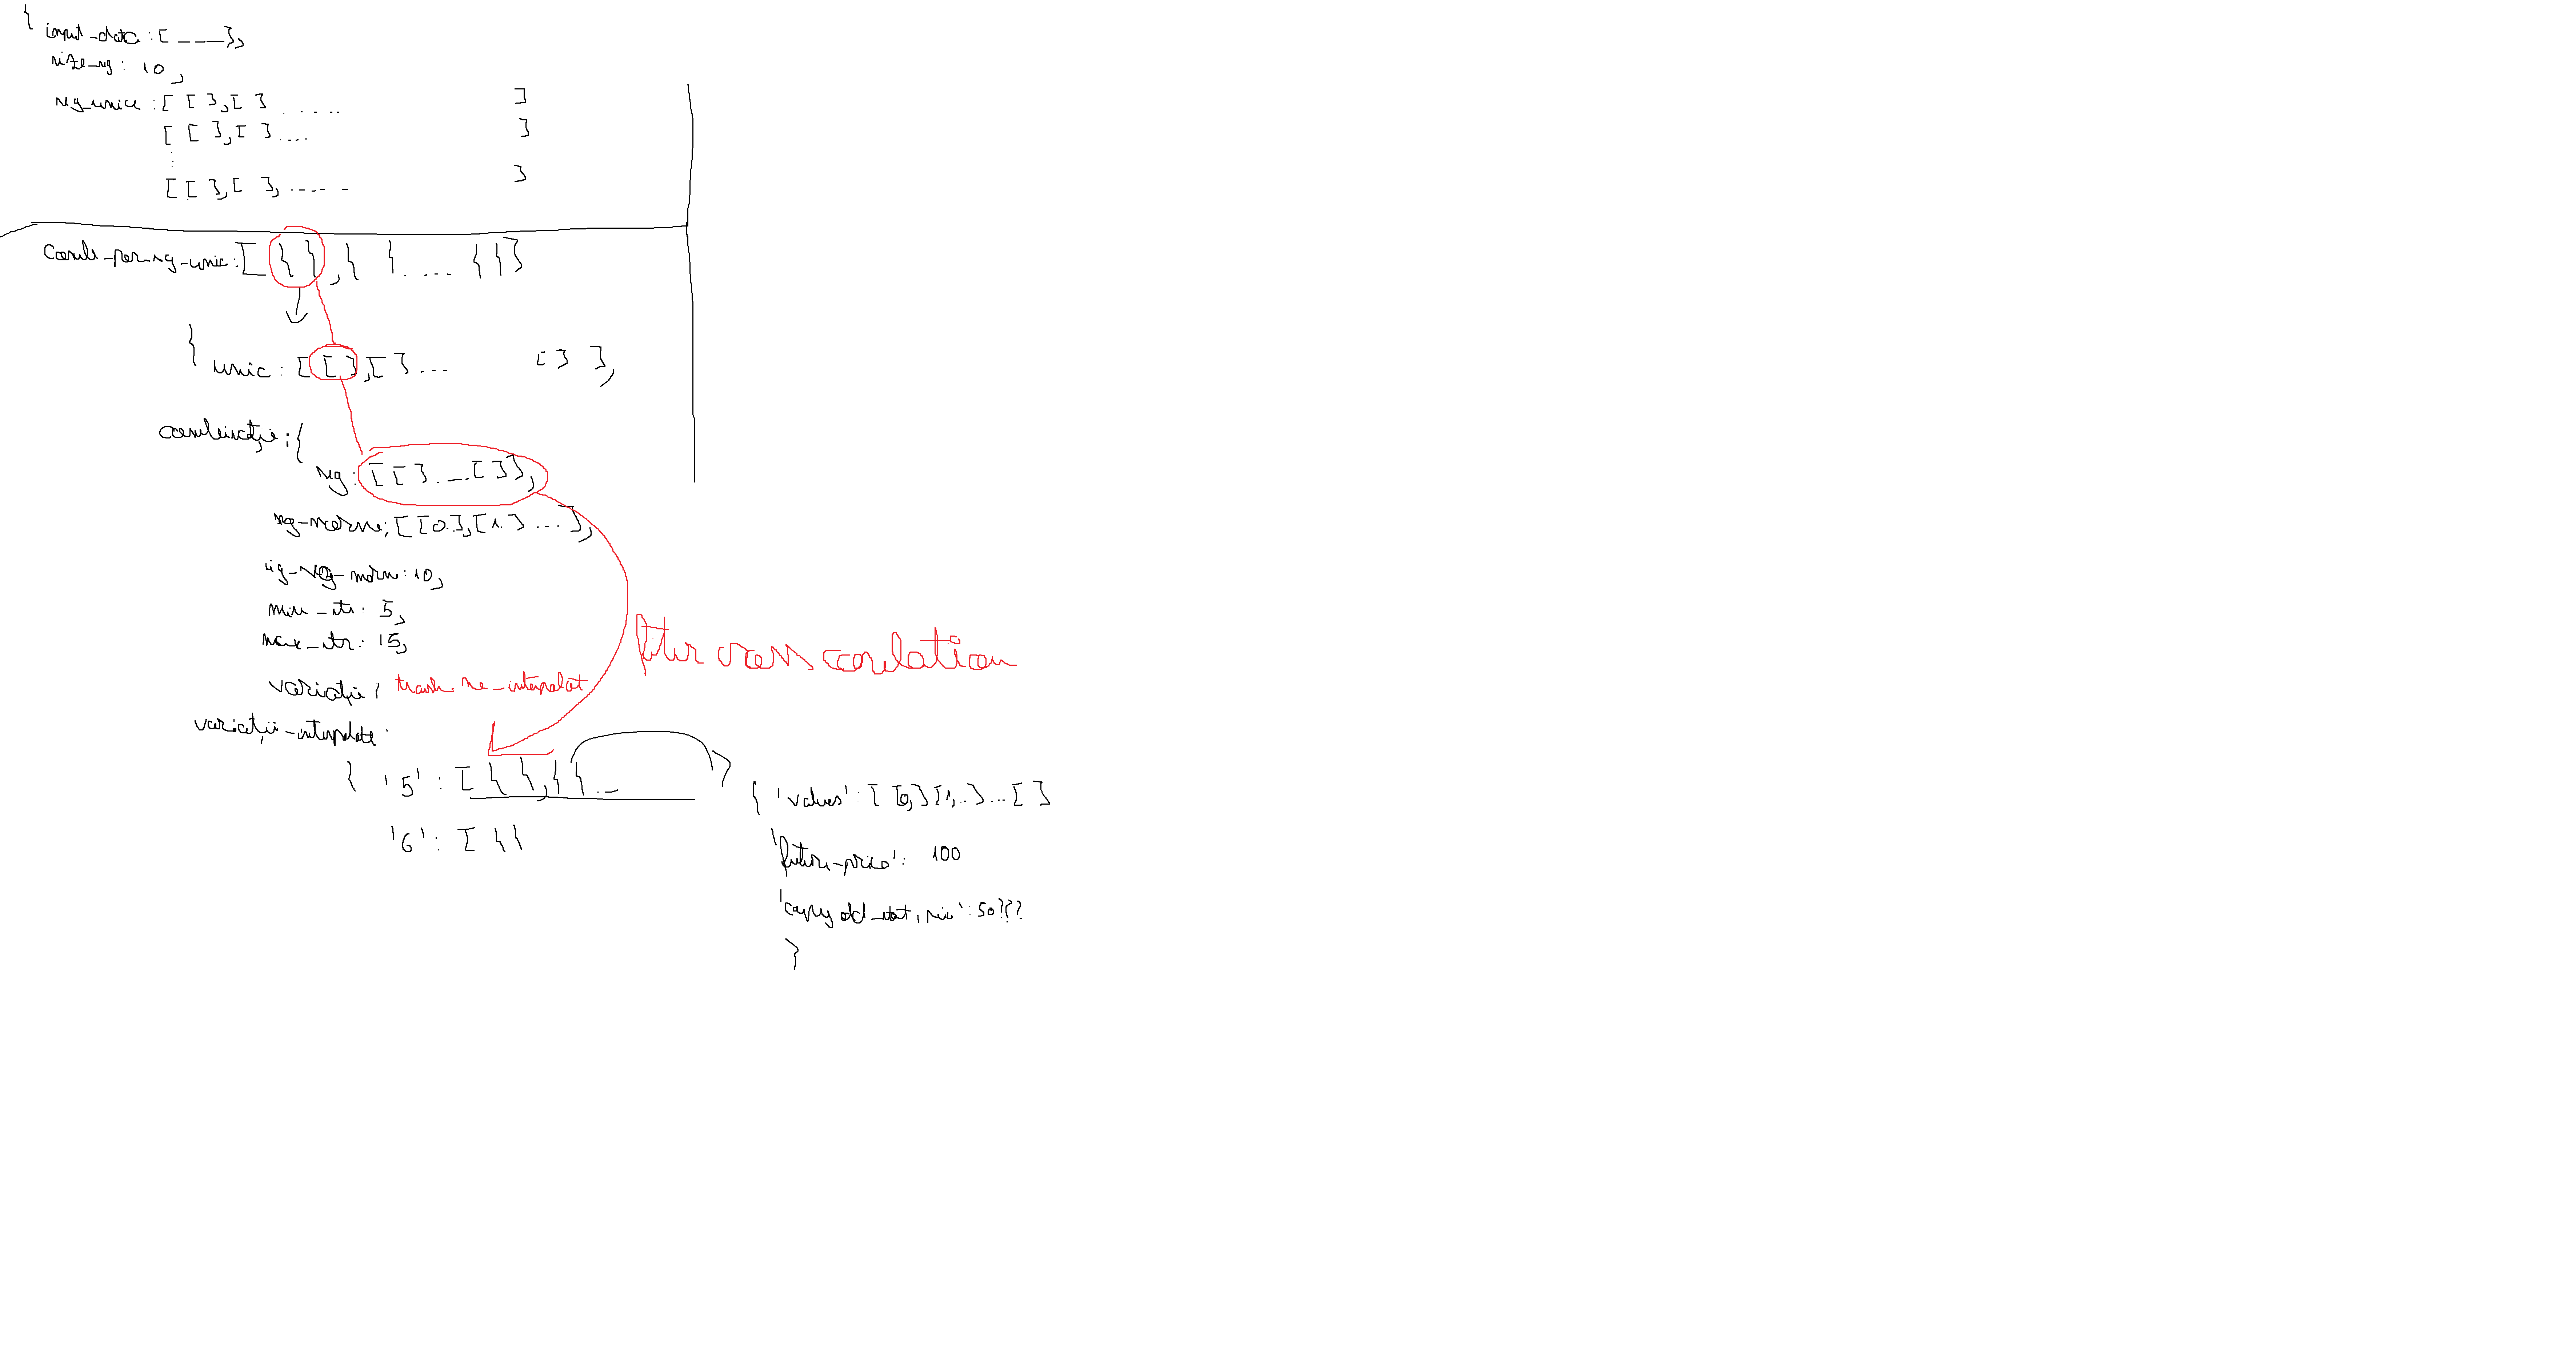 {
input_data : [ _ _ _ ],
size_sg : 10 ,
sg_unice : [ [ ] , [ ] ..... ]
[ [ ] , [ ] .... ]
⋮
[ [ ] , [ ] , ----- ]
comb_per_sg_unic : [ { } , { } .... { } ]
{
unic : [ [ ] , [ ] ... [ ] ] ,
combinație : {
sg : [ [ ] .... [ ] ] ,
sg_norm : [ [0.] , [1.] ... ] ,
sg_norm : 10 ,
min_str : 5 ,
max_str : 15 ,
variație : trash ne_interpolat
variații_interpolate :
filtru cross corelation
{ '5' : [ { } , { } ...
'6' : [ { }
{ 'values' : [ [0,] [1,..] ... [ ]
'future_price' : 100
'copy old_ ' : 50???
}